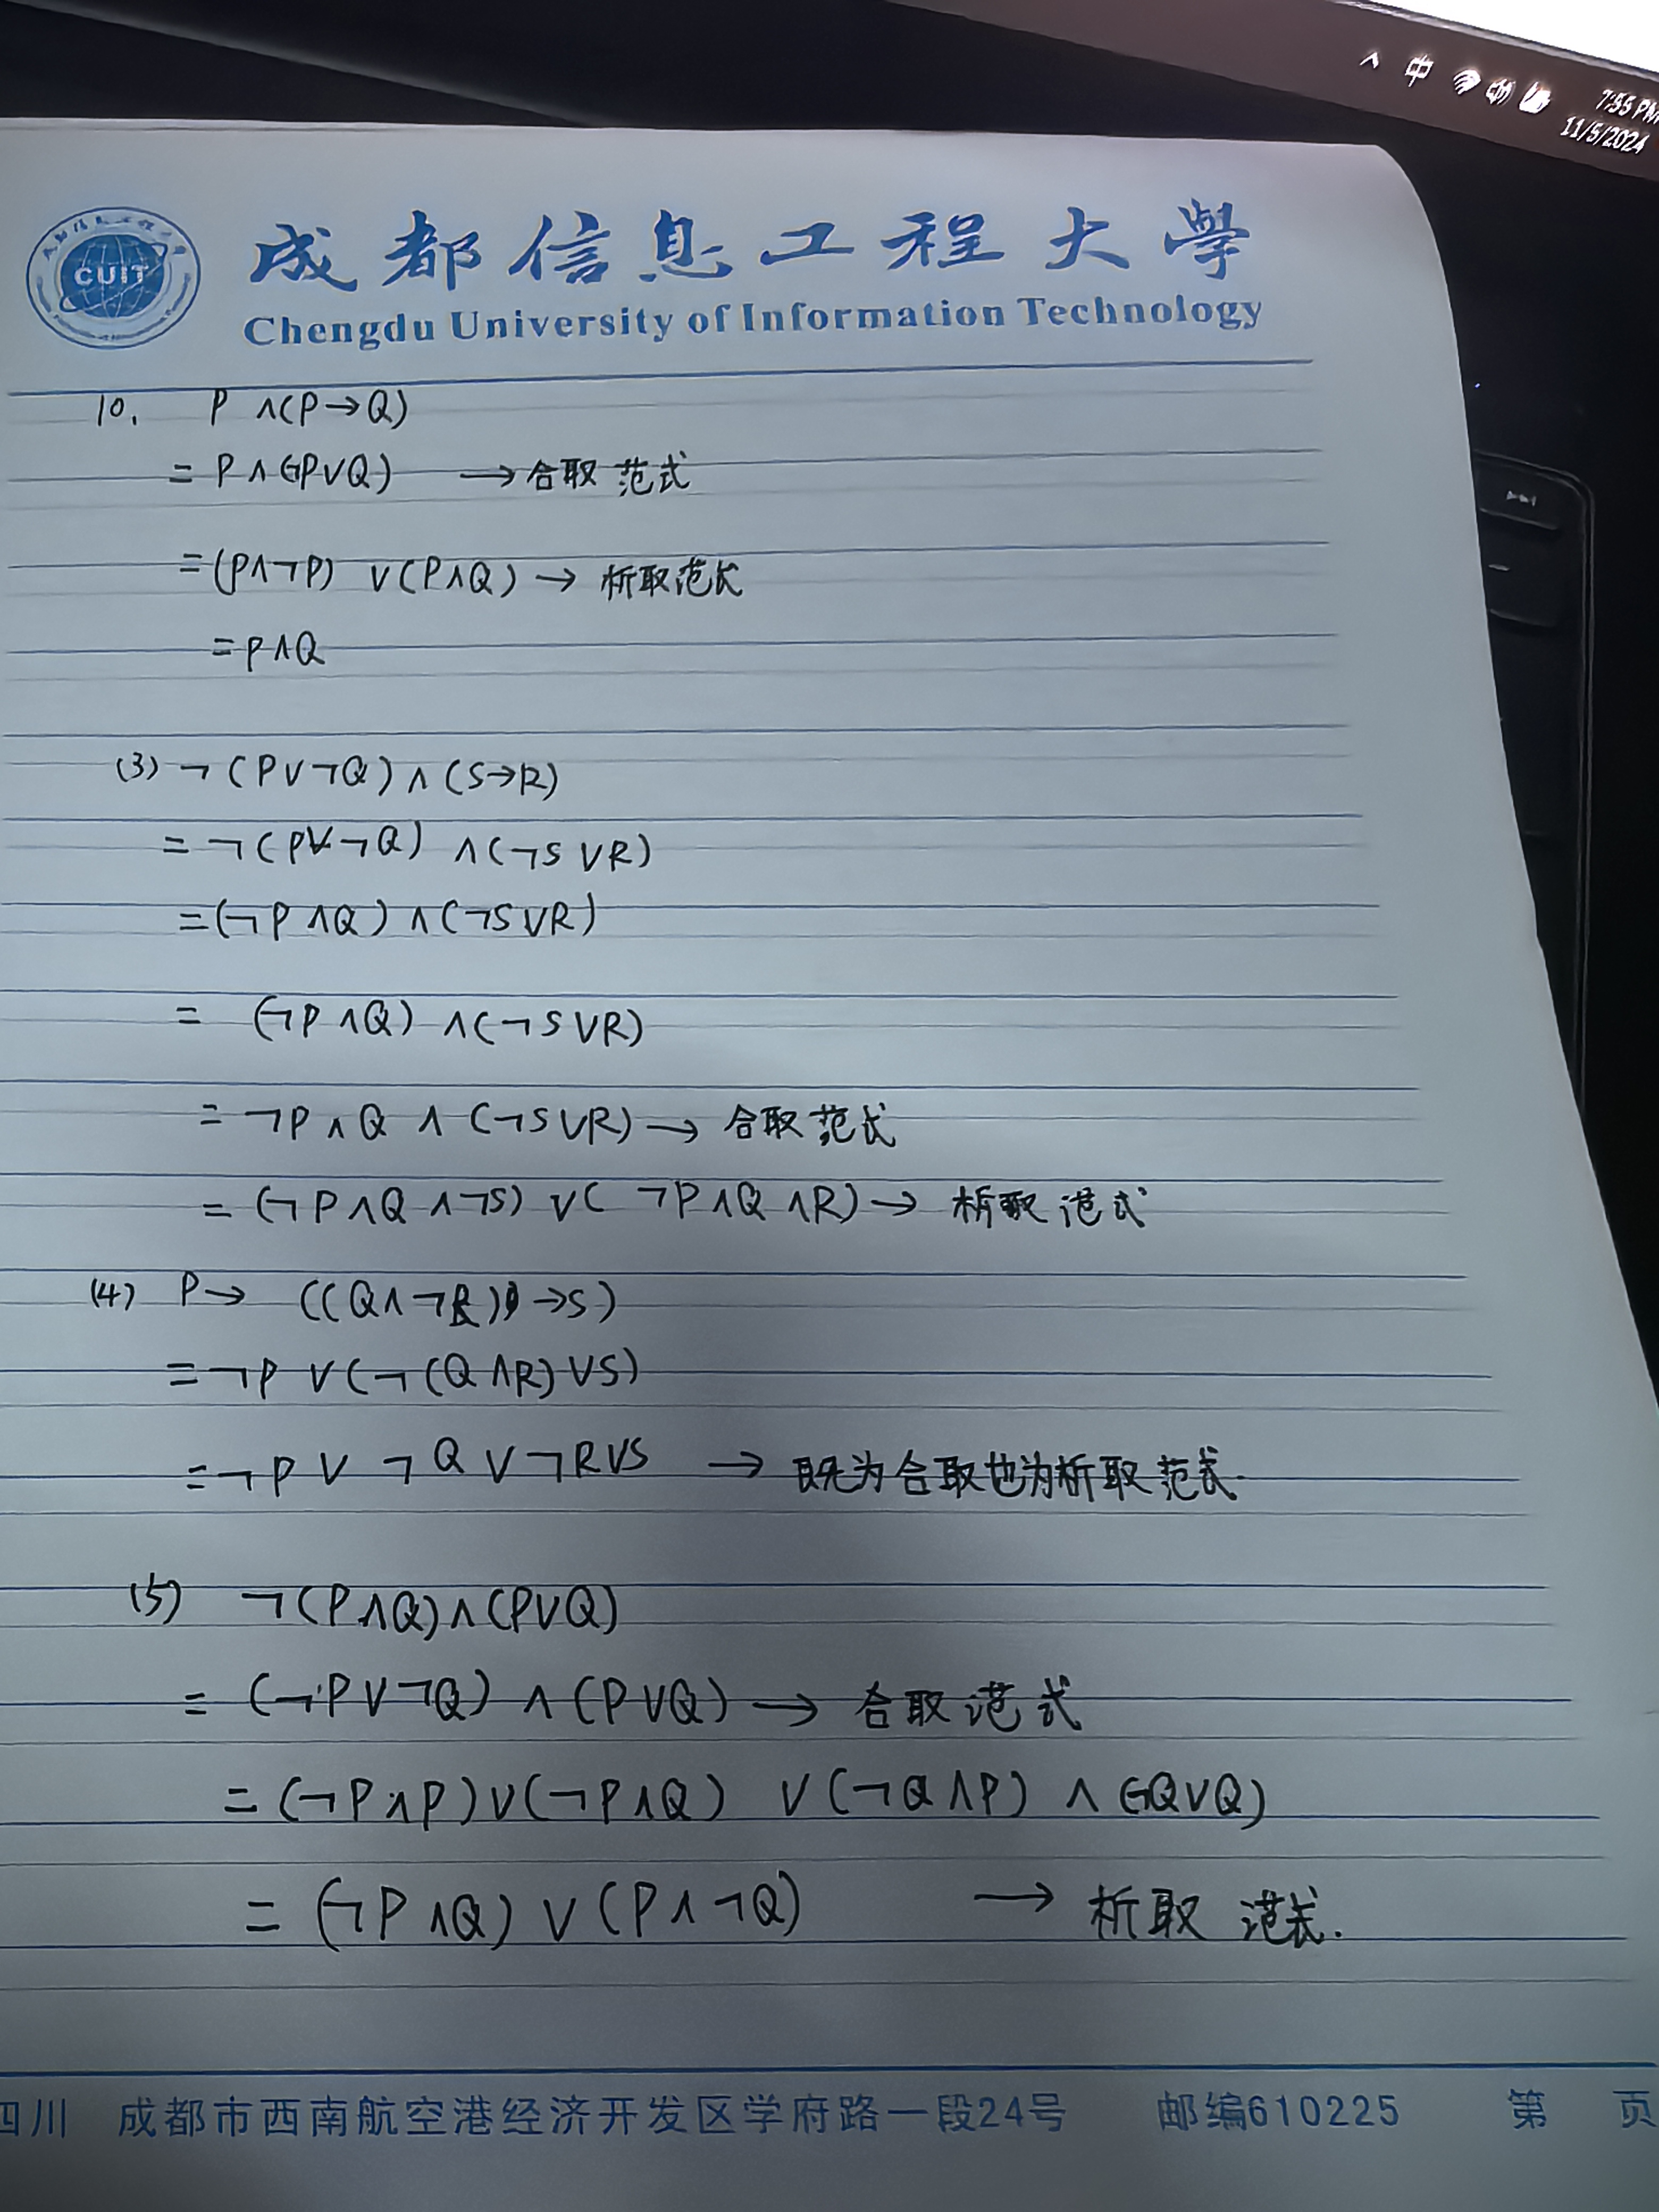 ^ 中
7:55 PM
11/5/2024
CUIT
成都信息工程大學
Chengdu University of Information Technology
10. P ∧(P→Q)
= P∧(¬P∨Q) → 合取范式
=(P∧¬P) ∨(P∧Q) → 析取范式
=P∧Q
(3) ¬(P∨¬Q)∧(S→R)
=¬(P∨¬Q) ∧(¬S∨R)
=(¬P∧Q)∧(¬S∨R)
= (¬P∧Q) ∧(¬S∨R)
= ¬P∧Q∧(¬S∨R) → 合取范式
= (¬P∧Q∧¬S)∨(¬P∧Q∧R) → 析取范式
(4) P→ ((Q∧¬R))→S)
=¬P∨(¬(Q∧R)∨S)
=¬P∨¬Q∨¬R∨S → 既为合取也为析取范式.
(5) ¬(P∧Q)∧(P∨Q)
= (¬P∨¬Q)∧(P∨Q) → 合取范式
=(¬P∧P)∨(¬P∧Q) ∨(¬Q∧P) ∧(¬Q∨Q)
= (¬P∧Q)∨(P∧¬Q) → 析取范式.
四川 成都市西南航空港经济开发区学府路一段24号 邮编610225 第 页